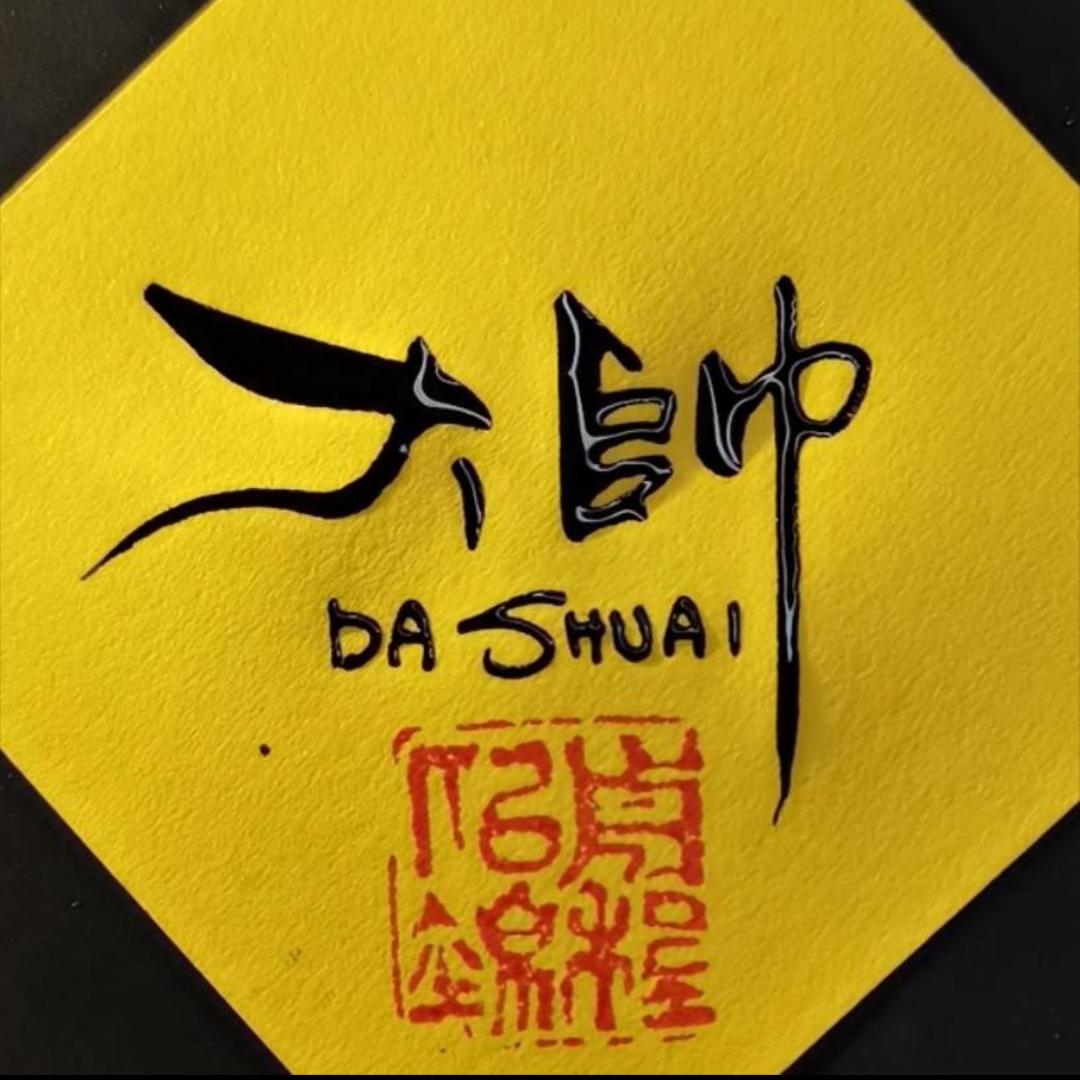 大帥
DA SHUAI